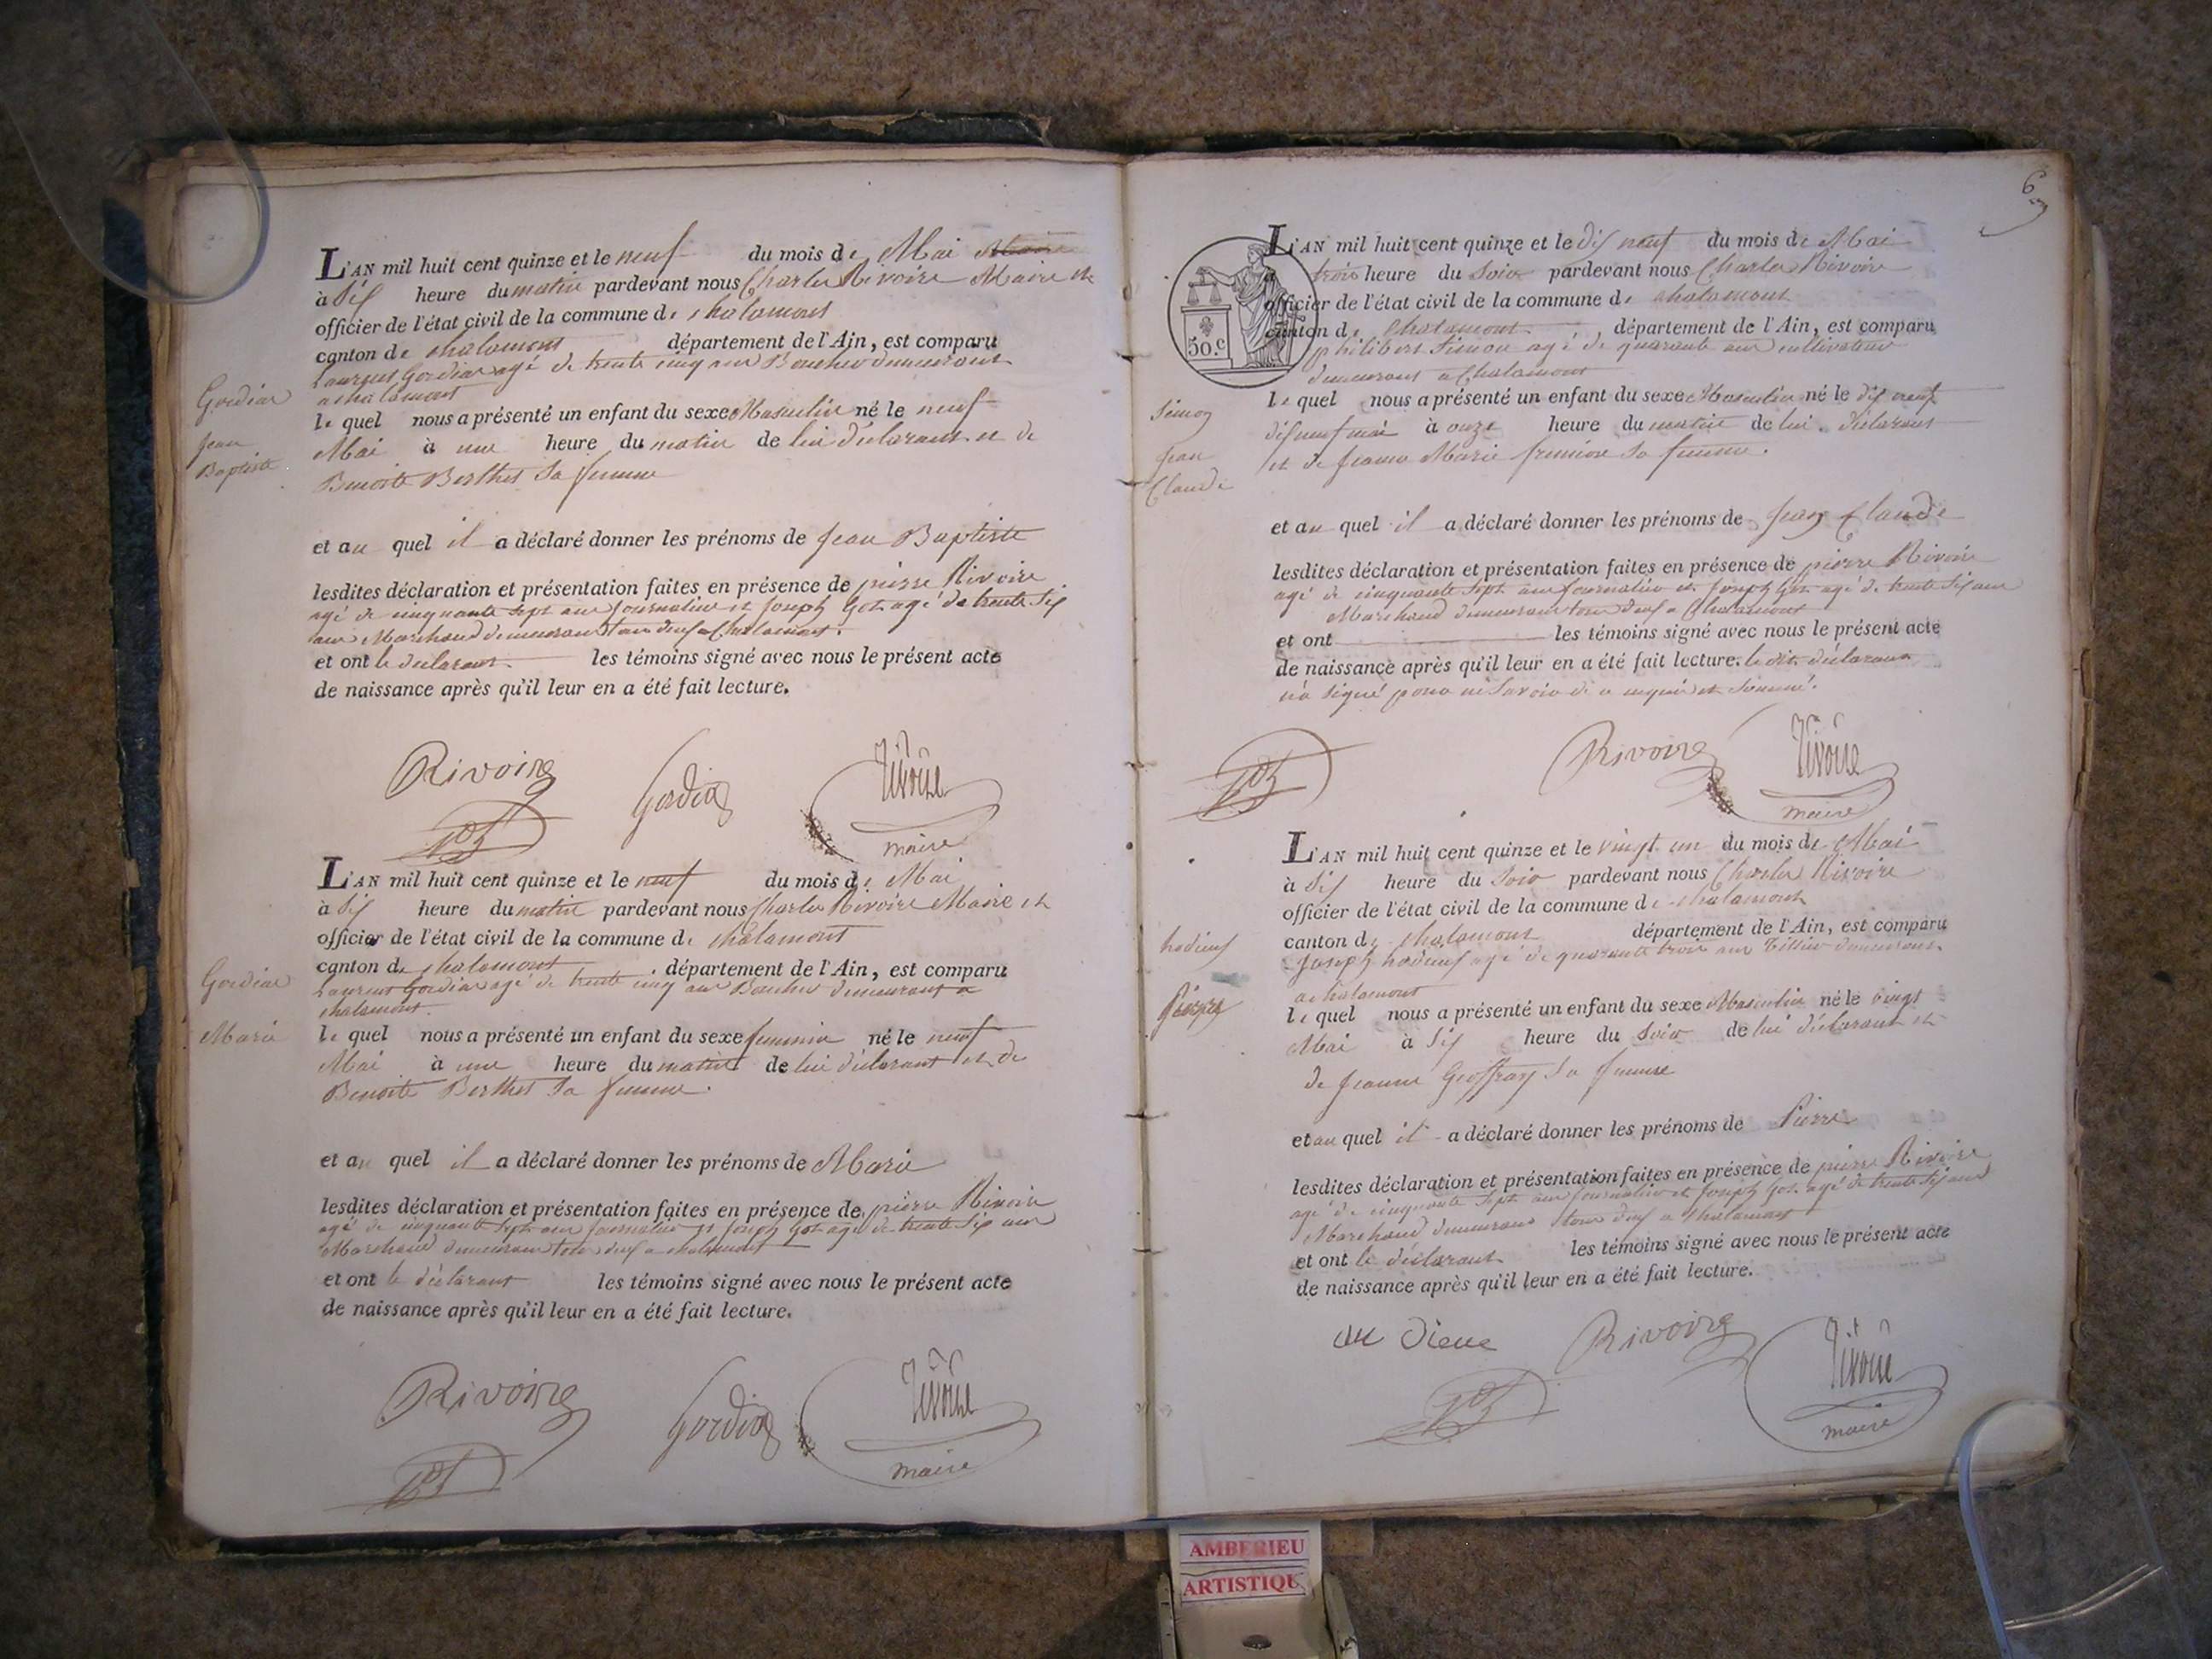 L'AN mil huit cent quinze et le neuf du mois de Mai
à Six heure du matin pardevant nous Charles Rivoire Maire et
officier de l'état civil de la commune de chalamont
canton de chalamont département de l'Ain, est comparu
Laurent Gordiat agé de trente cinq ans Boucher demeurant
a chalamont
Gordiat
Jean
Baptiste
le quel nous a présenté un enfant du sexe Masculin né le neuf
Mai à une heure du matin de lui déclarant et de
Benoite Berthet Sa femme
et au quel il a déclaré donner les prénoms de Jean Baptiste
lesdites déclaration et présentation faites en présence de pierre Rivoire
agé de cinquante sept ans Journalier et Joseph Goz agé de trente Six
ans Marchand demeurant tous deux a Chalamont.
et ont le déclarant les témoins signé avec nous le présent acte
de naissance après qu'il leur en a été fait lecture.
Rivoire
Gordiat
Rivoire
maire
L'AN mil huit cent quinze et le neuf du mois de Mai
à Six heure du matin pardevant nous Charles Rivoire Maire et
officier de l'état civil de la commune de chalamont
canton de chalamont département de l'Ain, est comparu
Laurent Gordiat agé de trente cinq ans Boucher demeurant a
chalamont.
Gordiat
Marie
le quel nous a présenté un enfant du sexe feminin né le neuf
Mai à une heure du matin de lui déclarant et de
Benoite Berthet Sa femme.
et au quel il a déclaré donner les prénoms de Marie
lesdites déclaration et présentation faites en présence de pierre Rivoire
agé de cinquante Sept ans Journalier et Joseph Goz agé de trente Six ans
Marchand demeurant tous deux a chalamont
et ont le déclarant les témoins signé avec nous le présent acte
de naissance après qu'il leur en a été fait lecture.
Rivoire
Gordiat
Rivoire
maire
6
50.c
L'AN mil huit cent quinze et le dix neuf du mois de Mai
à trois heure du Soir pardevant nous Charles Rivoire
officier de l'état civil de la commune de chalamont
canton de Chalamont, département de l'Ain, est comparu
philibert Simon agé de quarante ans cultivateur
demeurant a Chalamont
Simon
Jean
Claude
le quel nous a présenté un enfant du sexe Masculin né le dix neuf
dix neuf mai à onze heure du matin de lui déclarant
et de Jeanne Marie Sa femme.
et au quel il a déclaré donner les prénoms de Jean Claude
lesdites déclaration et présentation faites en présence de pierre Rivoire
agé de cinquante Sept ans Journalier et Joseph Goz agé de trente Six ans
Marchand demeurant tous deux a Chalamont
et ont les témoins signé avec nous le présent acte
de naissance après qu'il leur en a été fait lecture. le dit déclarant
n'a Signé pour ne Savoir de ce enquis et Sommé.
Rivoire
Rivoire
maire
L'AN mil huit cent quinze et le vingt un du mois de Mai
à Six heure du Soir pardevant nous Charles Rivoire
officier de l'état civil de la commune de chalamont
canton de chalamont département de l'Ain, est comparu
Joseph agé de quarante trois ans Tissier demeurant
a chalamont
Pierre
le quel nous a présenté un enfant du sexe Masculin né le vingt
Mai à Six heure du Soir de lui déclarant et
de Jeanne Geoffray Sa femme
et au quel il a déclaré donner les prénoms de Pierre
lesdites déclaration et présentation faites en présence de pierre Rivoire
agé de cinquante Sept ans Journalier et Joseph Goz agé de trente Six ans
Marchand demeurant tous deux a chalamont
et ont le déclarant les témoins signé avec nous le présent acte
de naissance après qu'il leur en a été fait lecture.
Rivoire
Rivoire
maire
AMBERIEU
ARTISTIQUE